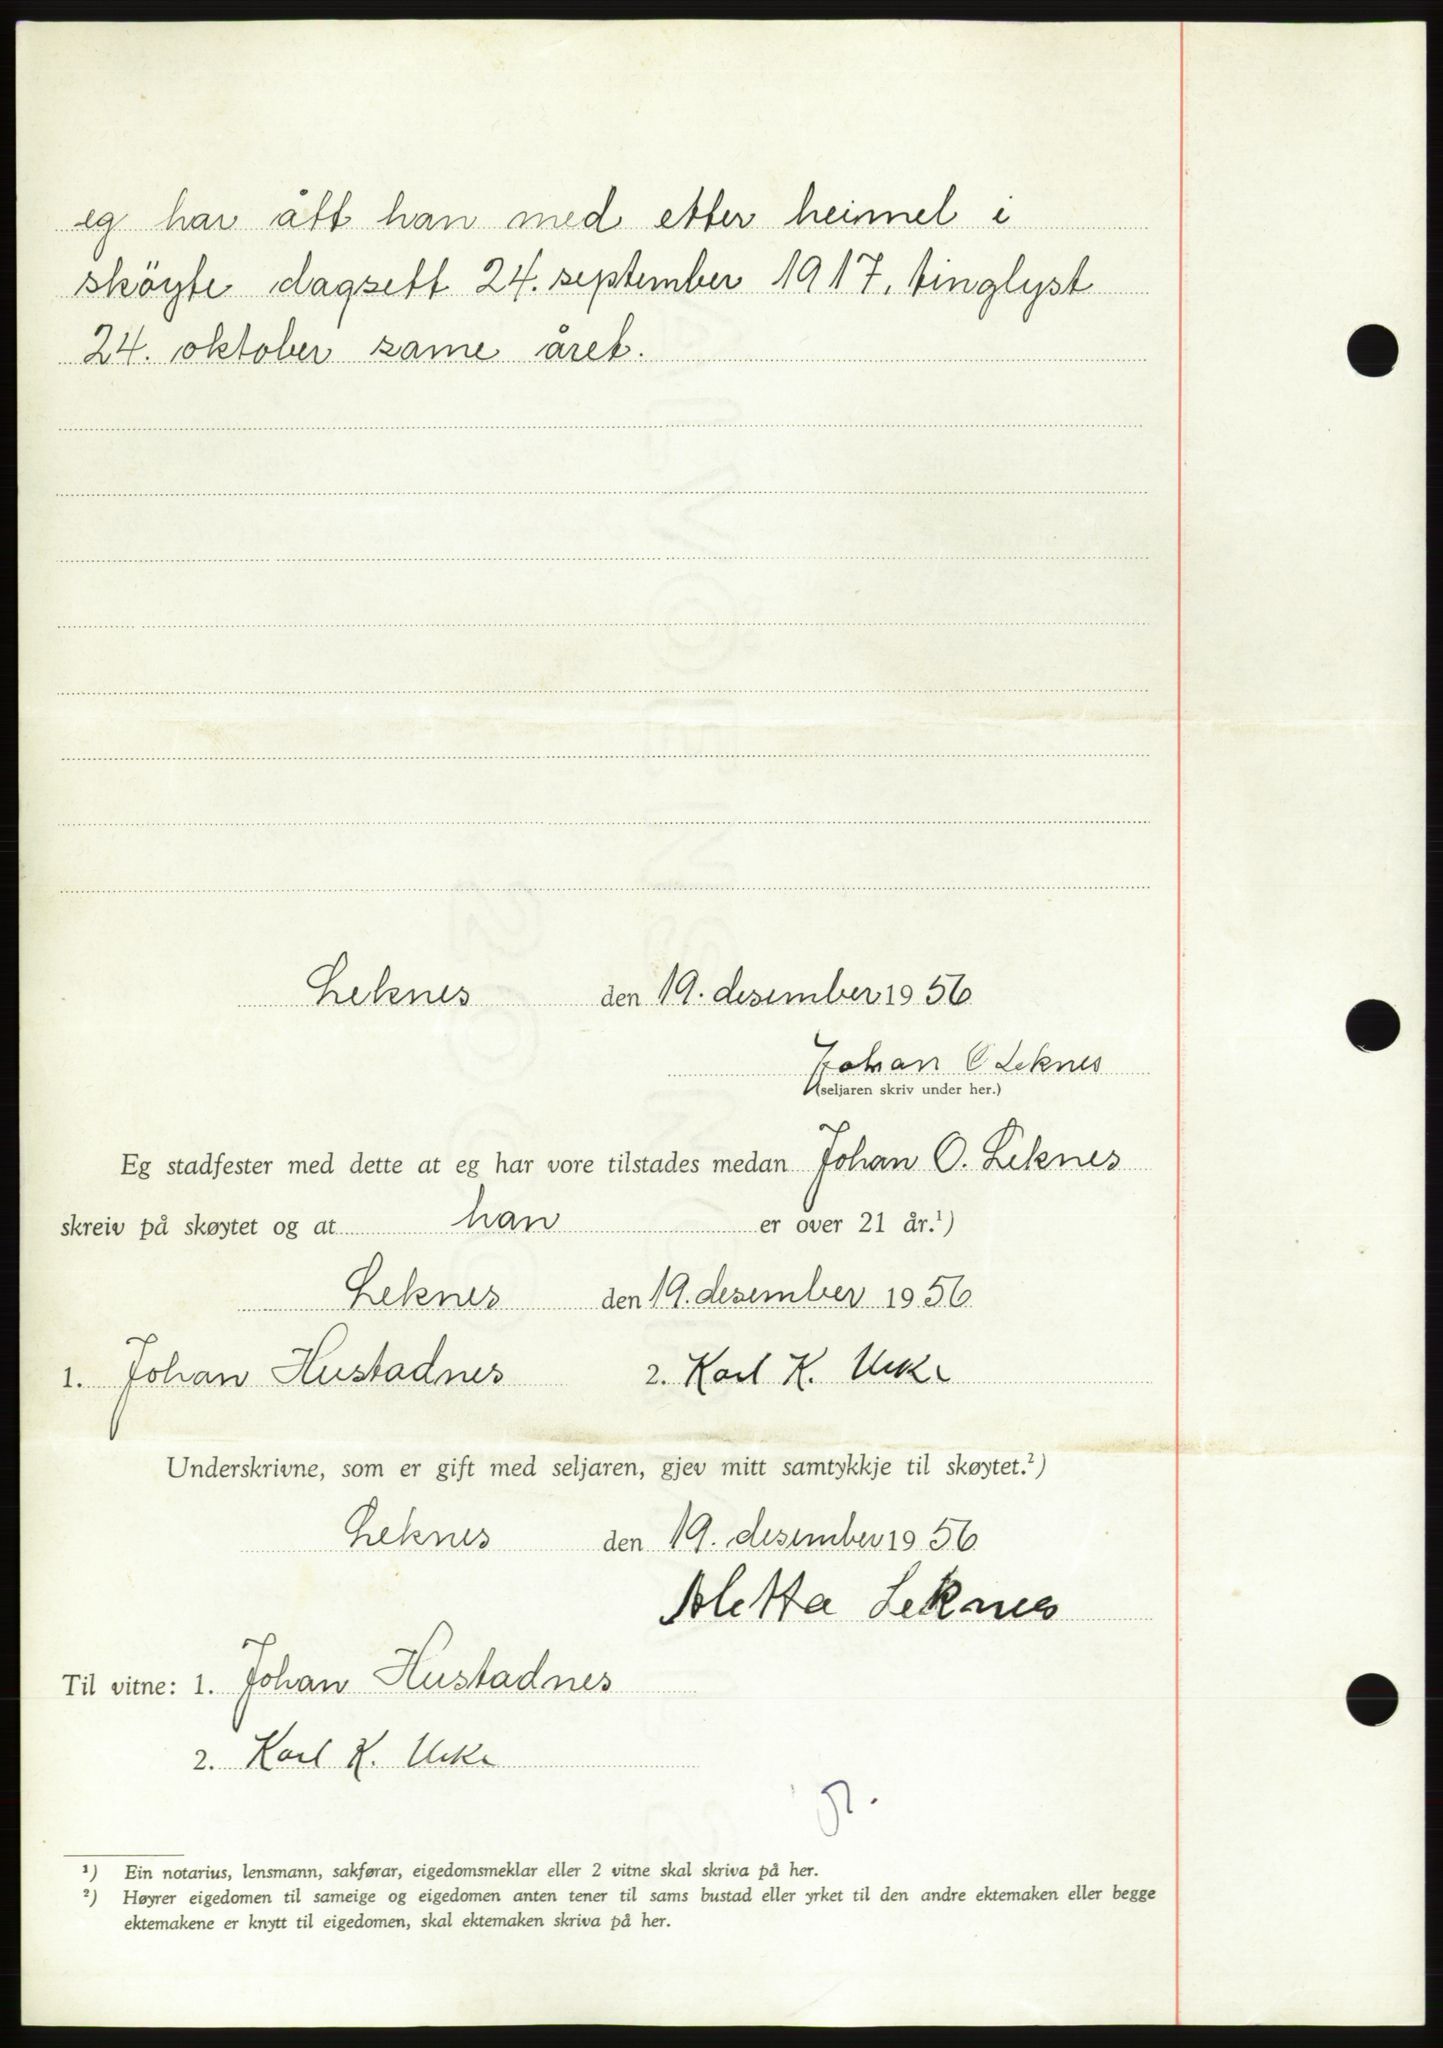 eg har ått han med etter heimel i
sköyte dagsett 24. september 1917, tinglyst
24. oktober same året.
Leknes den 19. desember 1956
Johan O Leknes
(seljaren skriv under her.)
Eg stadfester med dette at eg har vore tilstades medan Johan O. Leknes
skreiv på skøytet og at han er over 21 år.¹)
Leknes den 19. desember 1956
1. Johan Hustadnes 2. Karl K. Urke
Underskrivne, som er gift med seljaren, gjev mitt samtykkje til skøytet.²)
Leknes den 19. desember 1956
Aletta Leknes
Til vitne: 1. Johan Hustadnes
2. Karl K. Urke
¹) Ein notarius, lensmann, sakførar, eigedomsmeklar eller 2 vitne skal skriva på her.
²) Høyrer eigedomen til sameige og eigedomen anten tener til sams bustad eller yrket til den andre ektemaken eller begge
ektemakene er knytt til eigedomen, skal ektemaken skriva på her.